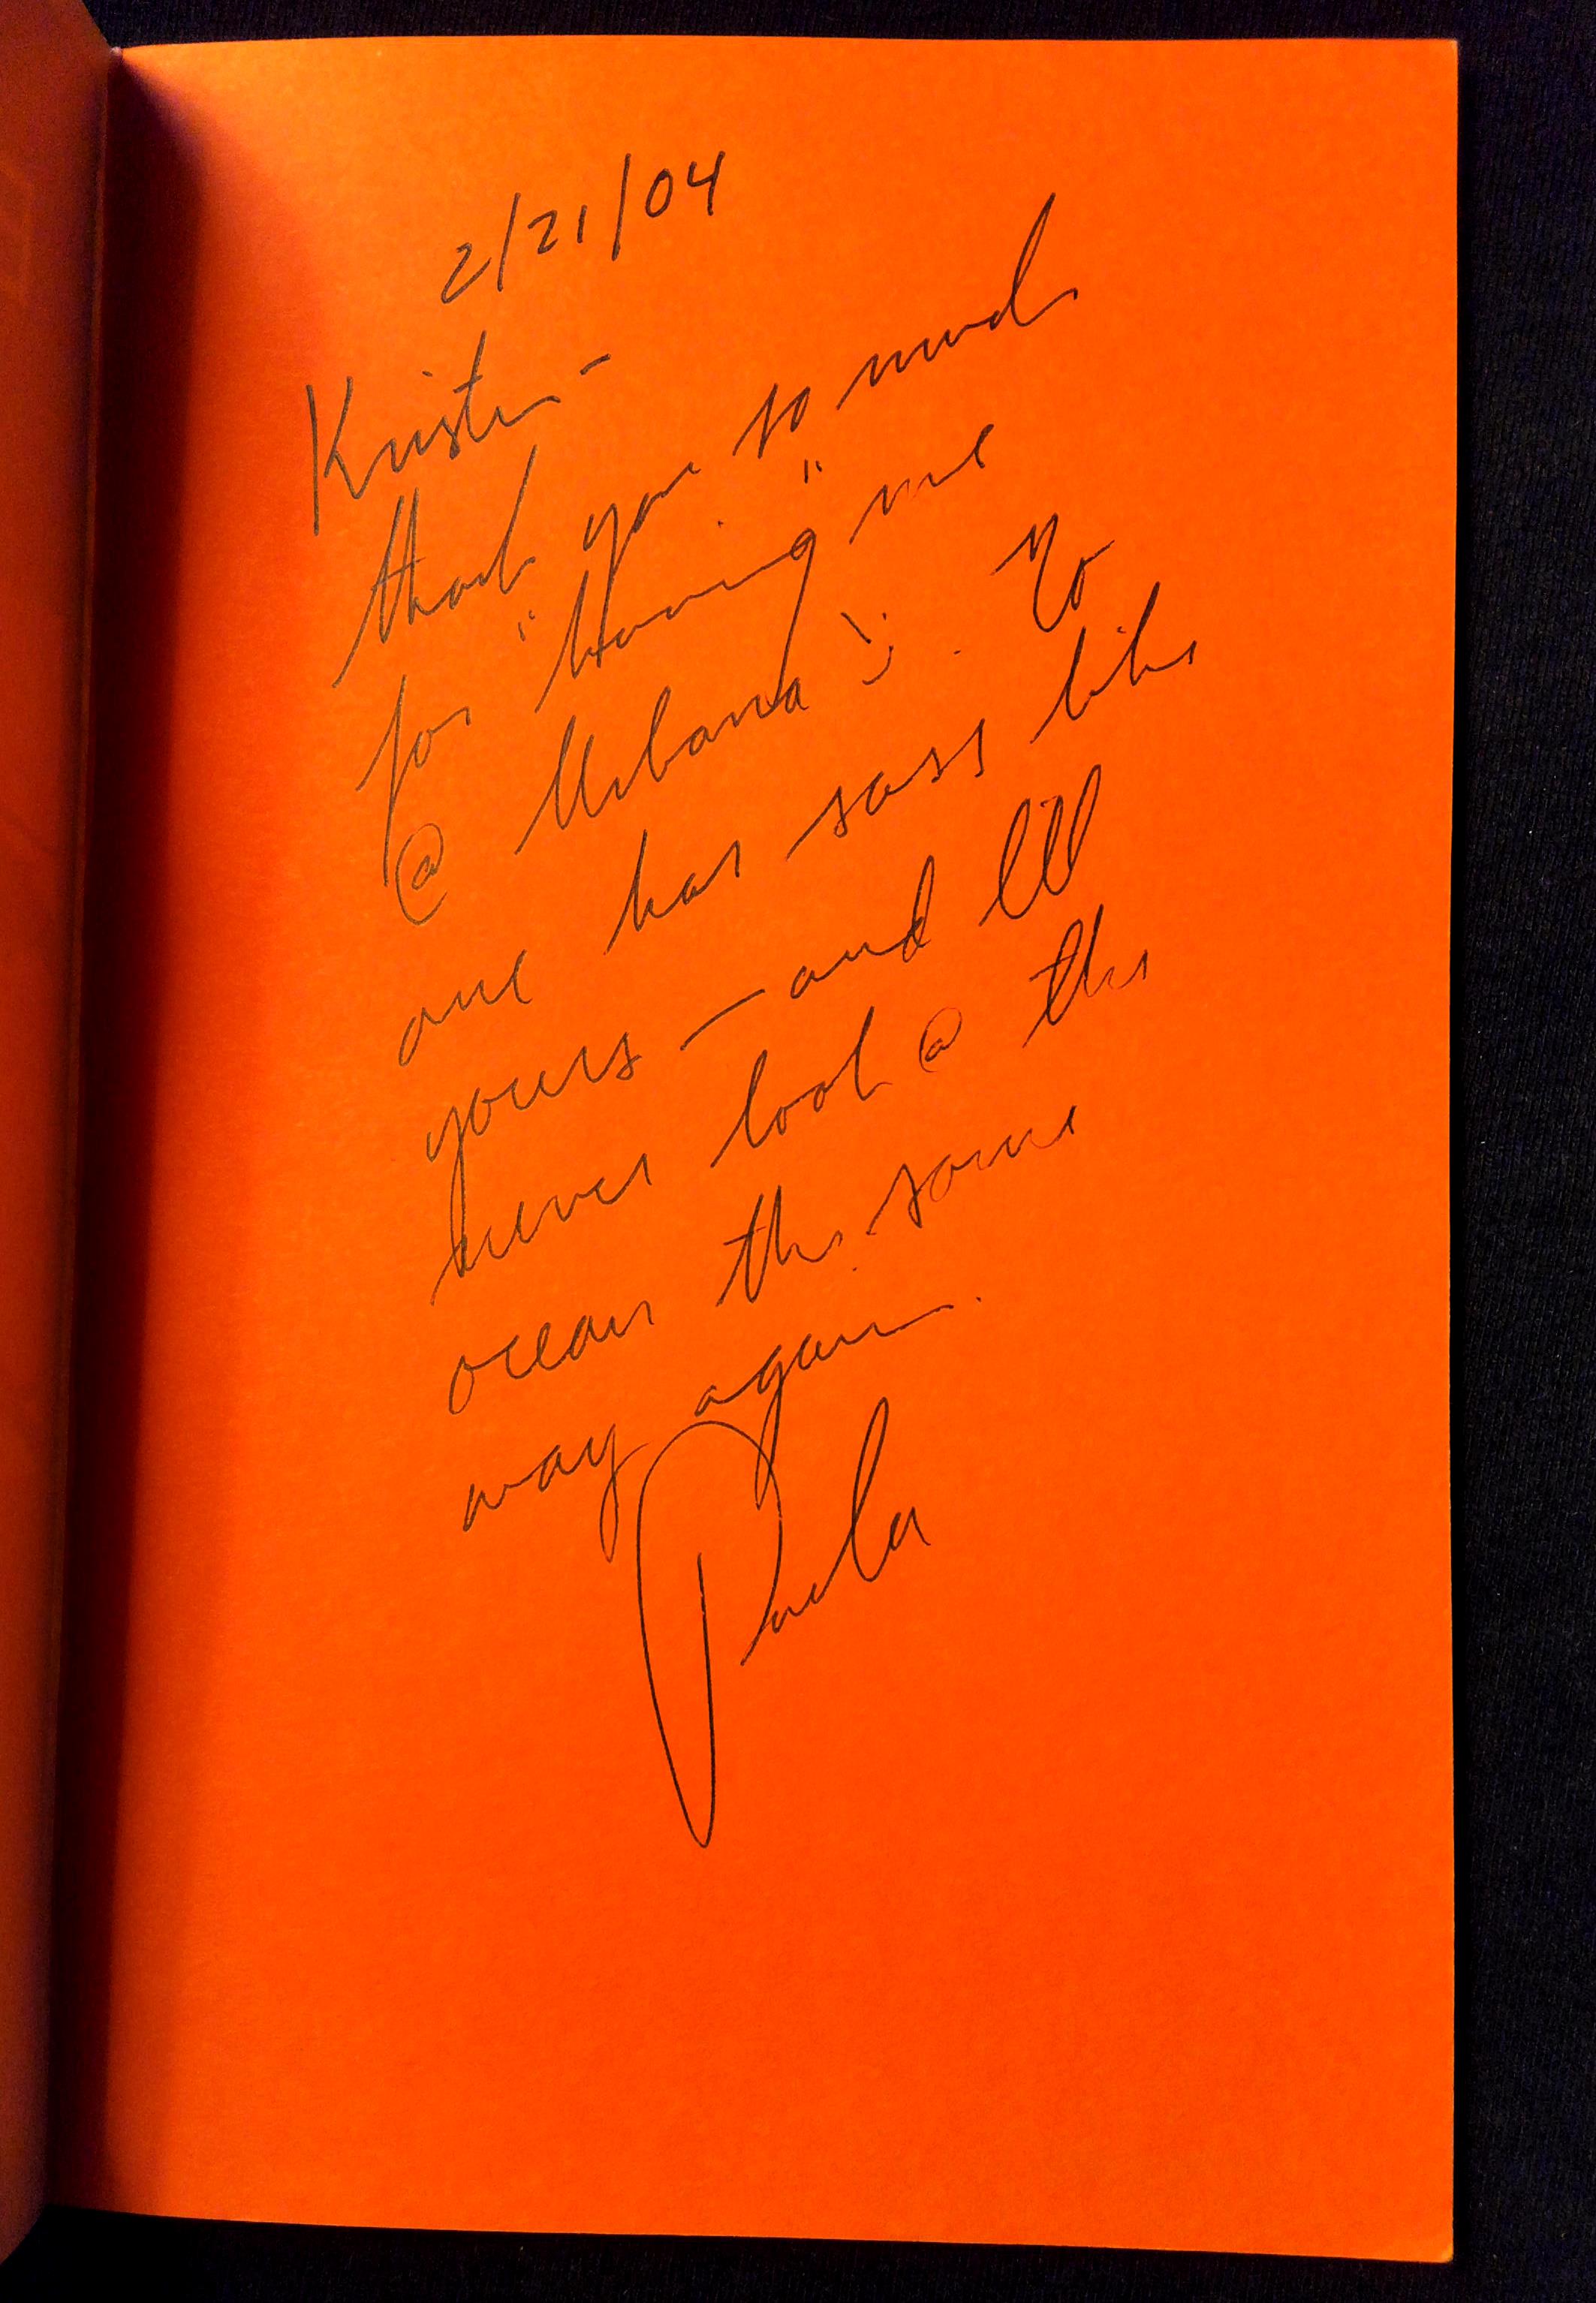 2/21/04
Kristin –
thank you so much
for "having" me
@ Urbana :). No
one has sass like
yours — and I'll
never look @ the
ocean the same
way again.
Paula